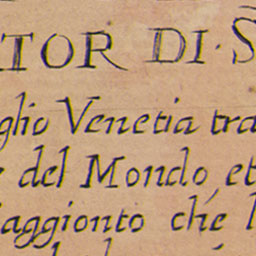 TOR DI S
glio Venetia tra
del Mondo, et
aggionto che l